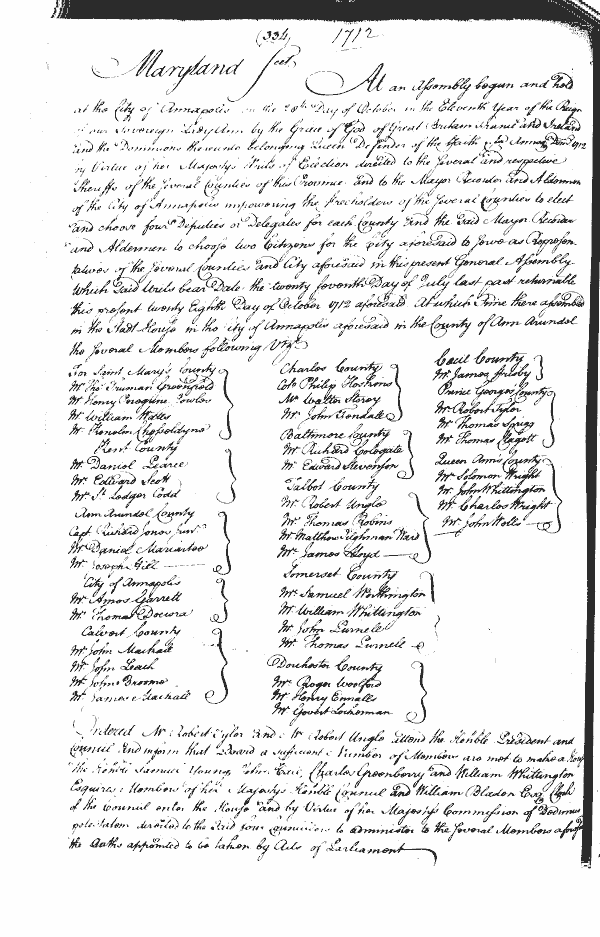 (334) 1712
Maryland Sct.
At an Assembly begun and held
at the City of Annapolis on the Day of October in the Eleventh Year of the Reign
of our Sovereign Lady by the Grace of God of Great Brittain France and Ireland
and the Dominions thereunto belonging Queen Defender of the Faith 1712
by Virtue of her Majestys Writts of Election directed to the several and respective
Sheriffs of the several Counties of this Province and to the Mayor Recorder and Aldermen
of the City of Annapolis impowering the freeholders of the several Counties to elect
and choose four Deputies or Delegates for each County and the said Mayor Recorder
and Aldermen to choose two Citizens for the City aforesaid to serve as Represen
tatives of the several Counties and City aforesaid in this present General Assembly
which said writs bear Date the twenty seventh Day of July last past returnable
this present twenty Eighth Day of October 1712 aforesaid At which time there assembled
in the Stadt House in the City of Annapolis aforesaid in the County of Ann Arundel
the several Members following Vizt.
For Saint Mary's County
Mr Tho Truman Greenfield
Mr Henry Peregrine Jowles
Mr William Watts
Mr Kenelm Cheseldyne
Kent County
Mr Daniel Pearce
Mr Edward Scott
Mr St. Ledger Codd
Ann Arundel County
Capt Richard Jones Junr
Mr Daniel Mariartee
Mr Joseph Hill
City of Annapolis
Mr Amos Garrett
Mr Thomas Docwra
Calvert County
Mr John Mackall
Mr John Leach
Mr John Broome
Mr James Mackall
Charles County
Colo Philip Hoskins
Mr Walter Storey
Mr John Fendall
Baltimore County
Mr Richard Colegate
Mr Edward Stevenson
Talbot County
Mr Robert Ungle
Mr Thomas Robins
Mr Matthew Tighman Ward
Mr James Lloyd
Somerset County
Mr Samuel Worthington
Mr William Whittington
Mr John Purnell
Mr Thomas Purnell
Dorchester County
Mr Roger Woolford
Mr Henry Ennalls
Mr Govert Lockerman
Cecil County
Mr James Frisby
Prince Georges County
Mr Robert Tyler
Mr Thomas Sprigg
Mr Thomas Clagett
Queen Ann's County
Mr Solomon Wright
Mr John Whittington
Mr Charles Wright
Mr John Wells
Ordered Mr Robert Tyler and Mr Robert Ungle attend the Honble President and
Council and inform that Board a sufficient Number of Members are met to make a House
The Honble Samuel Young, John Charles Greenberry and William Whittington
Esquires Members of her Majestys Honble Council and William Bladen Esq Clerk
of the Council enter the House and by Virtue of her Majestys Commission of Dedimus
potestatem directed to the said four to administer to the several Members
the Oaths appointed to be taken by Acts of Parliament